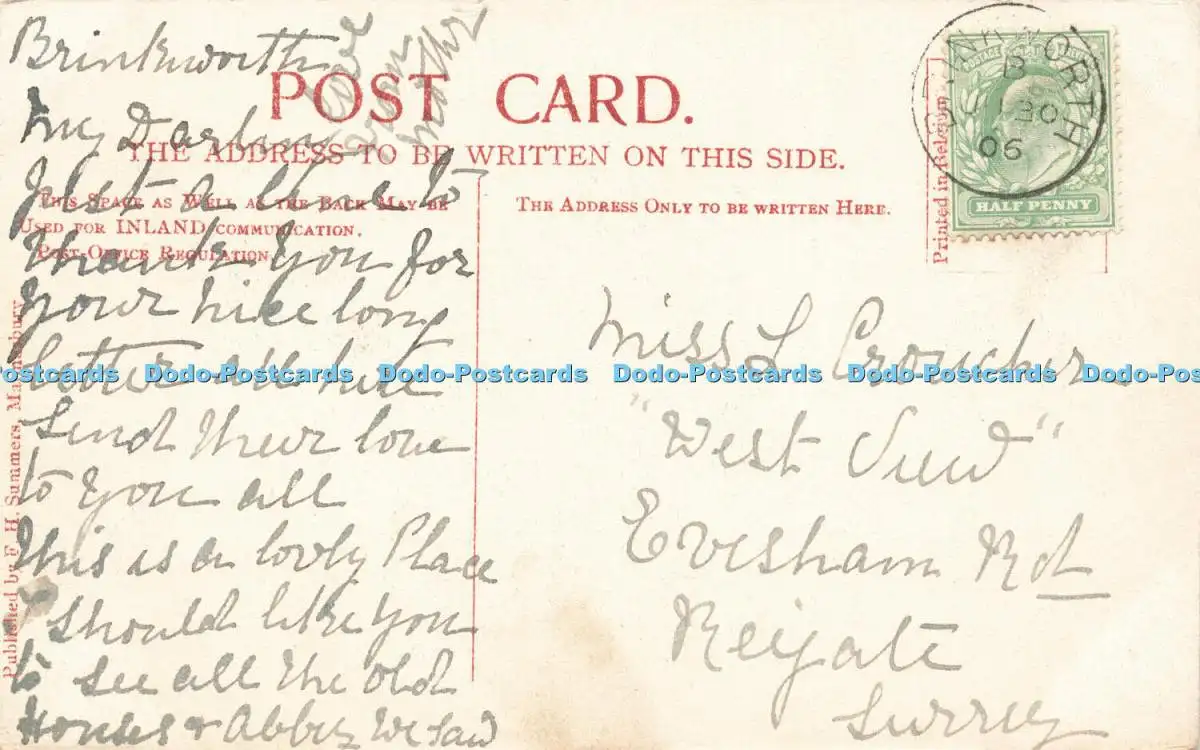 Brinkworth
love
from
Mother
POST CARD.
My Darling
THE ADDRESS TO BE WRITTEN ON THIS SIDE.
Just a line to
THIS SPACE AS WELL AS THE BACK MAY BE
USED FOR INLAND COMMUNICATION.
POST-OFFICE REGULATION.
Thank You for
your nice long
letter all here
Send their love
to you all
This is a lovly Place
I should like you
to see all the old
Houses & Abbey we saw
Published by F. H. Summers, Malmesbury
THE ADDRESS ONLY TO BE WRITTEN HERE.
Printed in Belgium
BRINKWORTH
B
JU 30
06
HALF PENNY
Miss L Croucher
"West View"
Evesham Rd
Reigate
Surrey
Dodo-Postcards Dodo-Postcards Dodo-Postcards Dodo-Postcards Dodo-Postcards